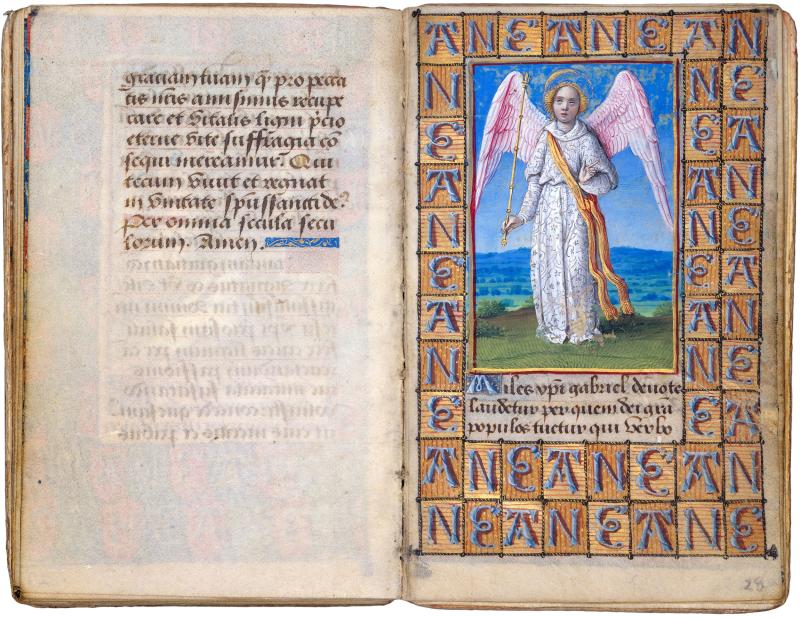 graciam tuam q̄ pro pecca
tis nr̄is amisimus recupe
rare et vitalis ligni p̄cio
eterne vite suffragia cō
sequi mereamur. Qui
tecum viuit et regnat
in vnitate spūssancti de
Per omnia secula secu
lorum. Amen.
A N E A N E A N
N N E
E E A
A A N
N N E
E E A
A A N
N N E
E E A
A N E A N E A N
N E A N E A N E
Miles xp̄i gabriel deuote
laudetur per quem dei gr̄a
populos tuetur qui verbo
28